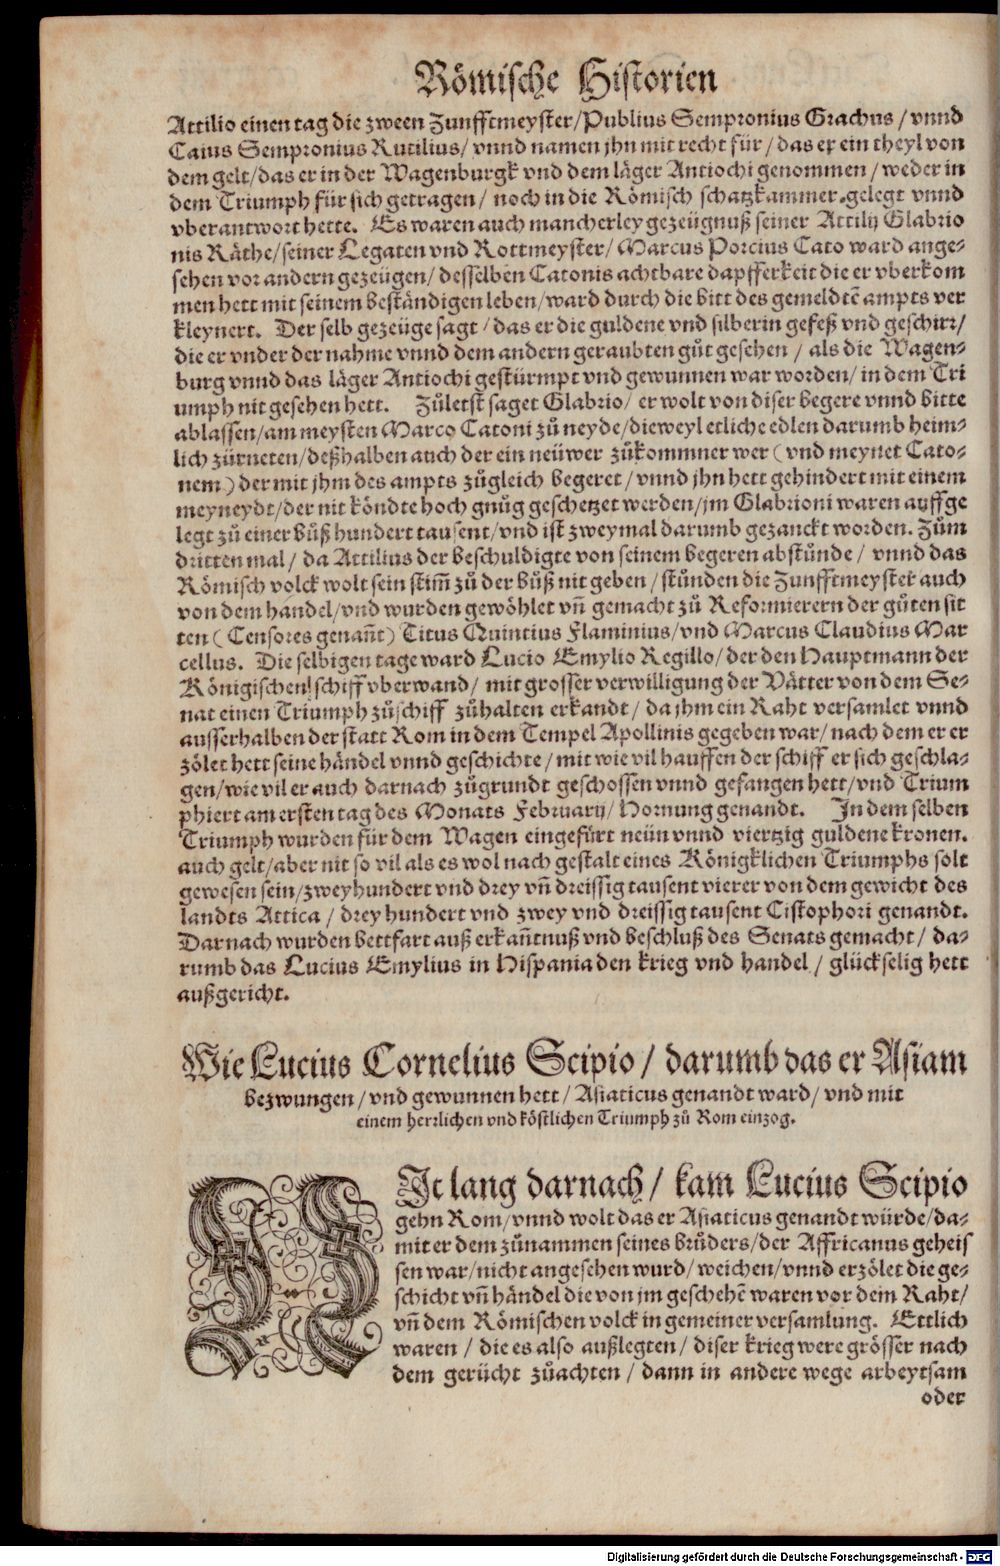 Römische Historien
Attilio einen tag die zween Zunfftmeyster/Publius Sempronius Grachus/ vnnd
Caius Sempronius Rutilius/ vnnd namen jhn mit recht für/ das er ein theyl von
dem gelt/das er in der Wagenburgk vnd dem läger Antiochi genommen/ weder in
dem Triumph für sich getragen/ noch in die Römisch schatzkammer gelegt vnnd
vberantwort hette. Es waren auch mancherley gezeügnuß seiner Attilij Glabrio
nis Räthe/seiner Legaten vnd Rottmeyster/ Marcus Porcius Cato ward ange-
sehen vor andern gezeügen/ desselben Catonis achtbare dapfferkeit die er vberkom
men hett mit seinem beständigen leben/ward durch die bitt des gemeldtē ampts ver
kleynert. Der selb gezeüge sagt/das er die guldene vnd silberin gefeß vnd geschirr/
die er vnder der nahme vnnd dem andern geraubten gůt gesehen/ als die Wagen-
burg vnnd das läger Antiochi gestürmpt vnd gewunnen war worden/ in dem Tri
umph nit gesehen hett. Zůletst saget Glabrio/ er wolt von diser begere vnnd bitte
ablassen/am meysten Marco Catoni zů neyde/dieweyl etliche edlen darumb heim-
lich zürneten/deßhalben auch der ein neüwer zůkommner wer (vnd meynet Cato-
nem) der mit jhm des ampts zůgleich begeret/ vnnd jhn hett gehindert mit einem
meyneydt/der nit köndte hoch gnůg geschetzet werden/jm Glabrioni waren auffge
legt zů einer bůß hundert tausent/vnd ist zweymal darumb gezanckt worden. Zům
dritten mal/ da Attilius der beschuldigte von seinem begeren abstůnde/ vnnd das
Römisch volck wolt sein stim̃ zů der bůß nit geben/ stůnden die Zunfftmeyster auch
von dem handel/vnd wurden gewöhlet vñ gemacht zů Reformierern der gůten sit
ten (Censores genañt) Titus Quintius Flaminius/vnd Marcus Claudius Mar
cellus. Die selbigen tage ward Lucio Emylio Regillo/der den Hauptmann der
Königischen schiff vberwand/ mit grosser verwilligung der Vätter von dem Se-
nat einen Triumph zů schiff zůhalten erkandt/ da jhm ein Raht versamlet vnnd
ausserhalben der statt Rom in dem Tempel Apollinis gegeben war/ nach dem er er
zölet hett seine händel vnnd geschichte/ mit wie vil hauffen der schiff er sich geschla-
gen/wie vil er auch darnach zůgrundt geschossen vnnd gefangen hett/vnd Trium
phiert am ersten tag des Monats February/ Hornung genandt. In dem selben
Triumph wurden für dem Wagen eingefürt neün vnnd viertzig guldene kronen.
auch gelt/aber nit so vil als es wol nach gestalt eines Königklichen Triumphs solt
gewesen sein/zweyhundert vnd drey vñ dreissig tausent vierer von dem gewicht des
landts Attica/ drey hundert vnd zwey vnd dreissig tausent Cistophori genandt.
Darnach wurden bettfart auß erkañtnuß vnd beschluß des Senats gemacht/ da-
rumb das Lucius Emylius in Hispania den krieg vnd handel/ glückselig hett
außgericht.
Wie Lucius Cornelius Scipio/ darumb das er Asiam
bezwungen/vnd gewunnen hett/ Asiaticus genandt ward/ vnd mit
einem herrlichen vnd köstlichen Triumph zů Rom einzog.
NIt lang darnach/ kam Lucius Scipio
gehn Rom/vnnd wolt das er Asiaticus genandt würde/da-
mit er dem zůnammen seines brůders/der Affricanus geheis
sen war/nicht angesehen wurd/weichen/vnnd erzölet die ge-
schicht vñ händel die von jm geschehē waren vor dem Raht/
vñ dem Römischen volck in gemeiner versamlung. Ettlich
waren/ die es also außlegten/ diser krieg were grösser nach
dem gerücht zůachten/ dann in andere wege arbeytsam
oder
Digitalisierung gefördert durch die Deutsche Forschungsgemeinschaft - DFG